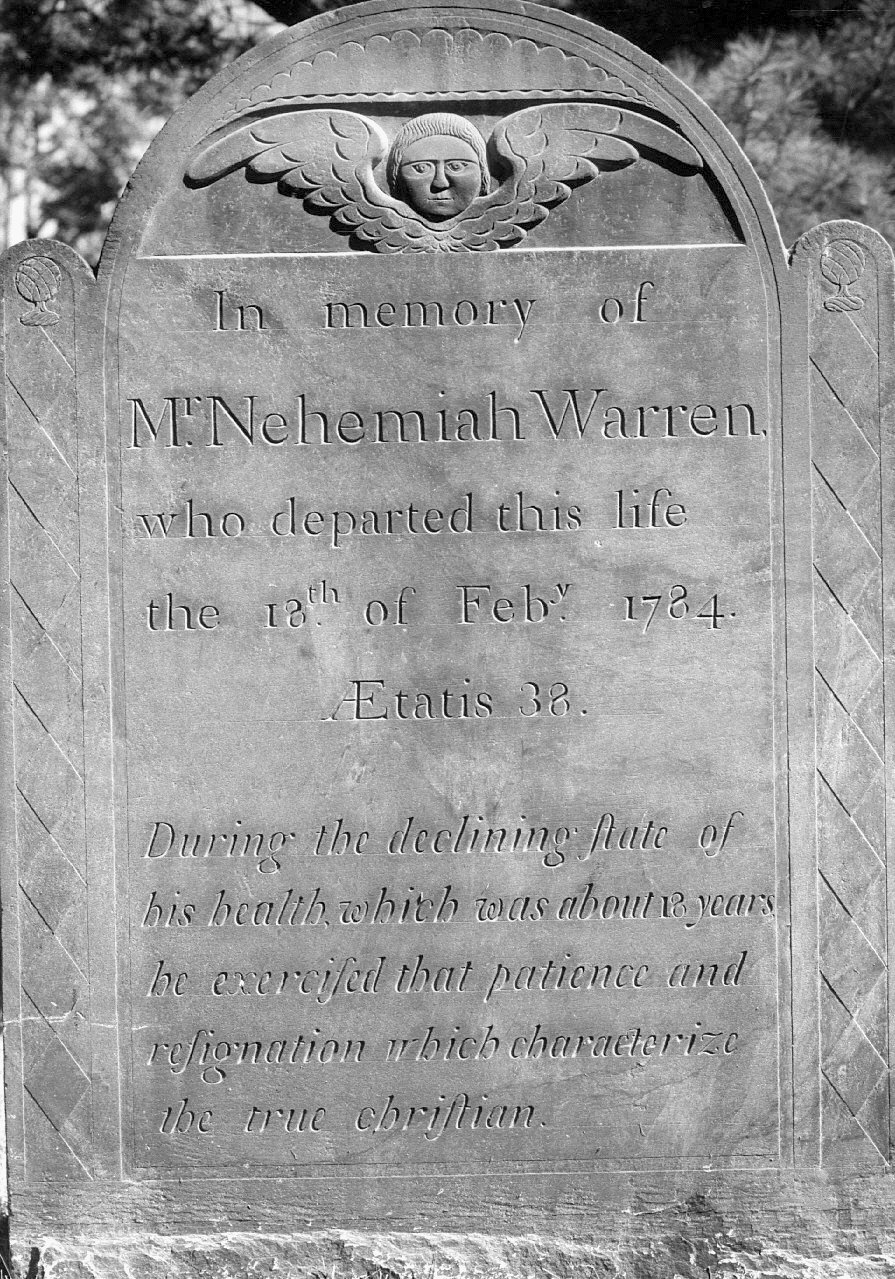 In memory of
Mr. Nehemiah Warren,
who departed this liſe
the 18th. of Feby. 1784.
Ætatis 38.
During the declining ſtate of
his health, which was about 18 years
he exerciſed that patience and
reſignation which characterize
the true chriſtian.